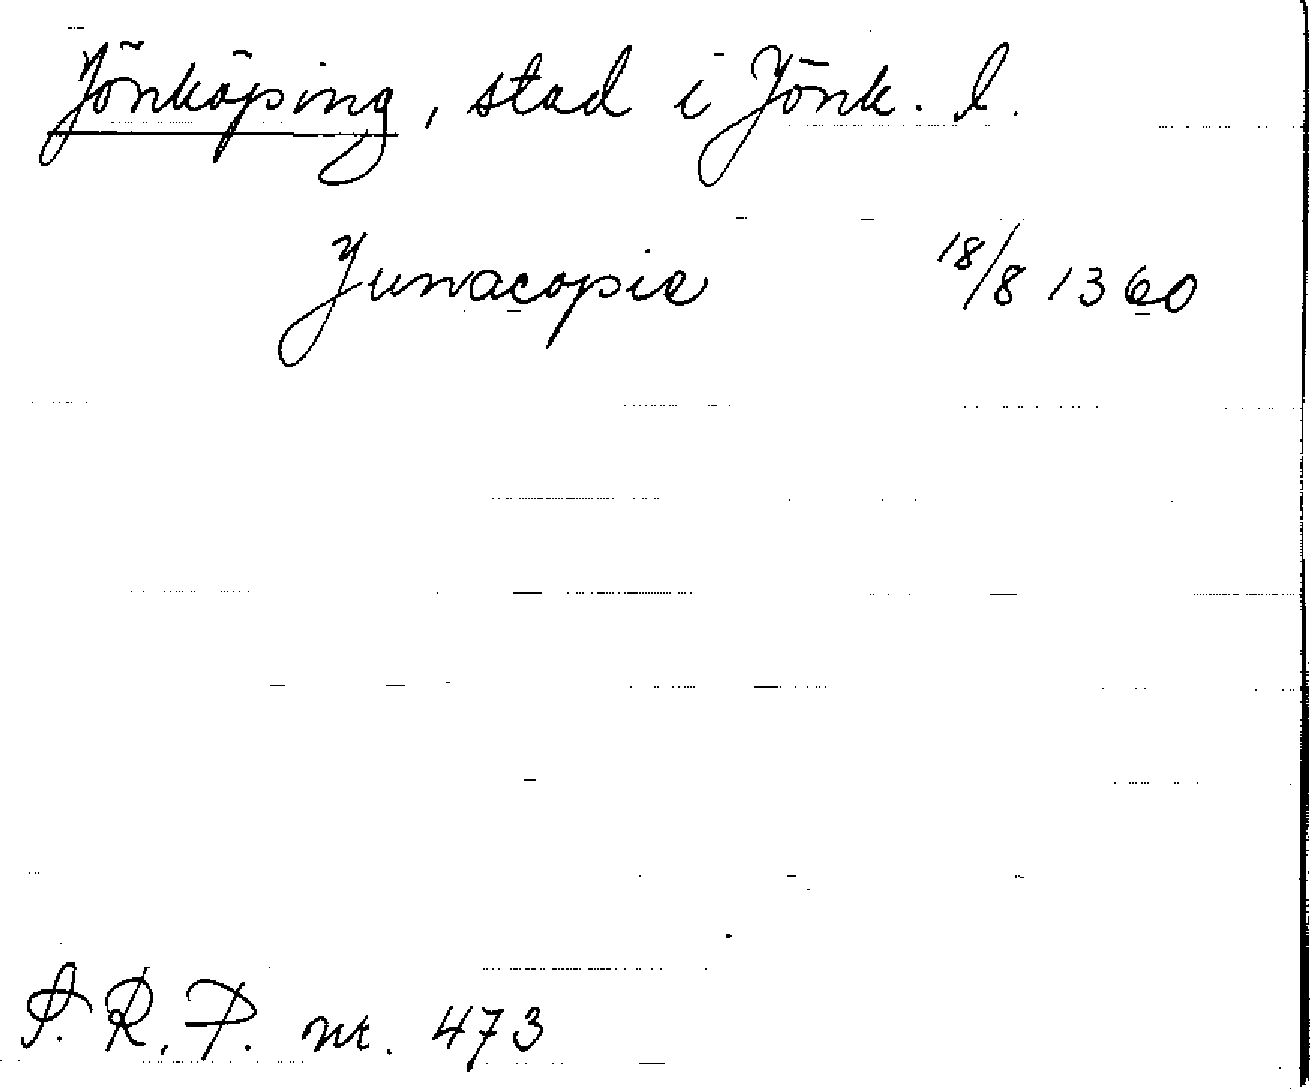 Jönköping, stad i Jönk. l.
Junacopie 18/8 1360
S. R. P. nr. 473